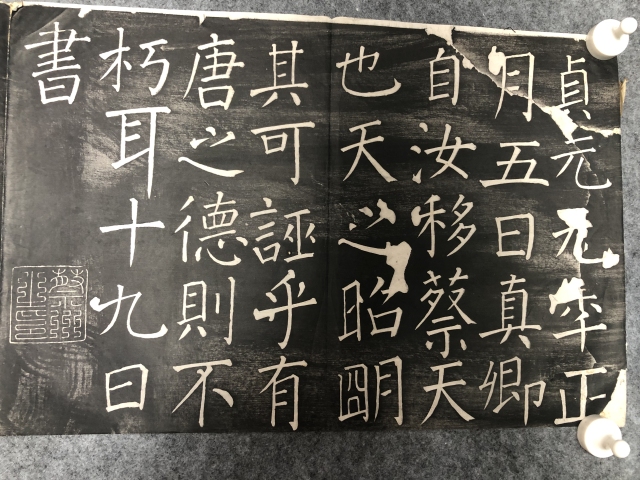 貞元元年正
月五日真卿
自汝移蔡天
也天之昭明
其可誣乎有
唐之德則不
朽耳十九日
書